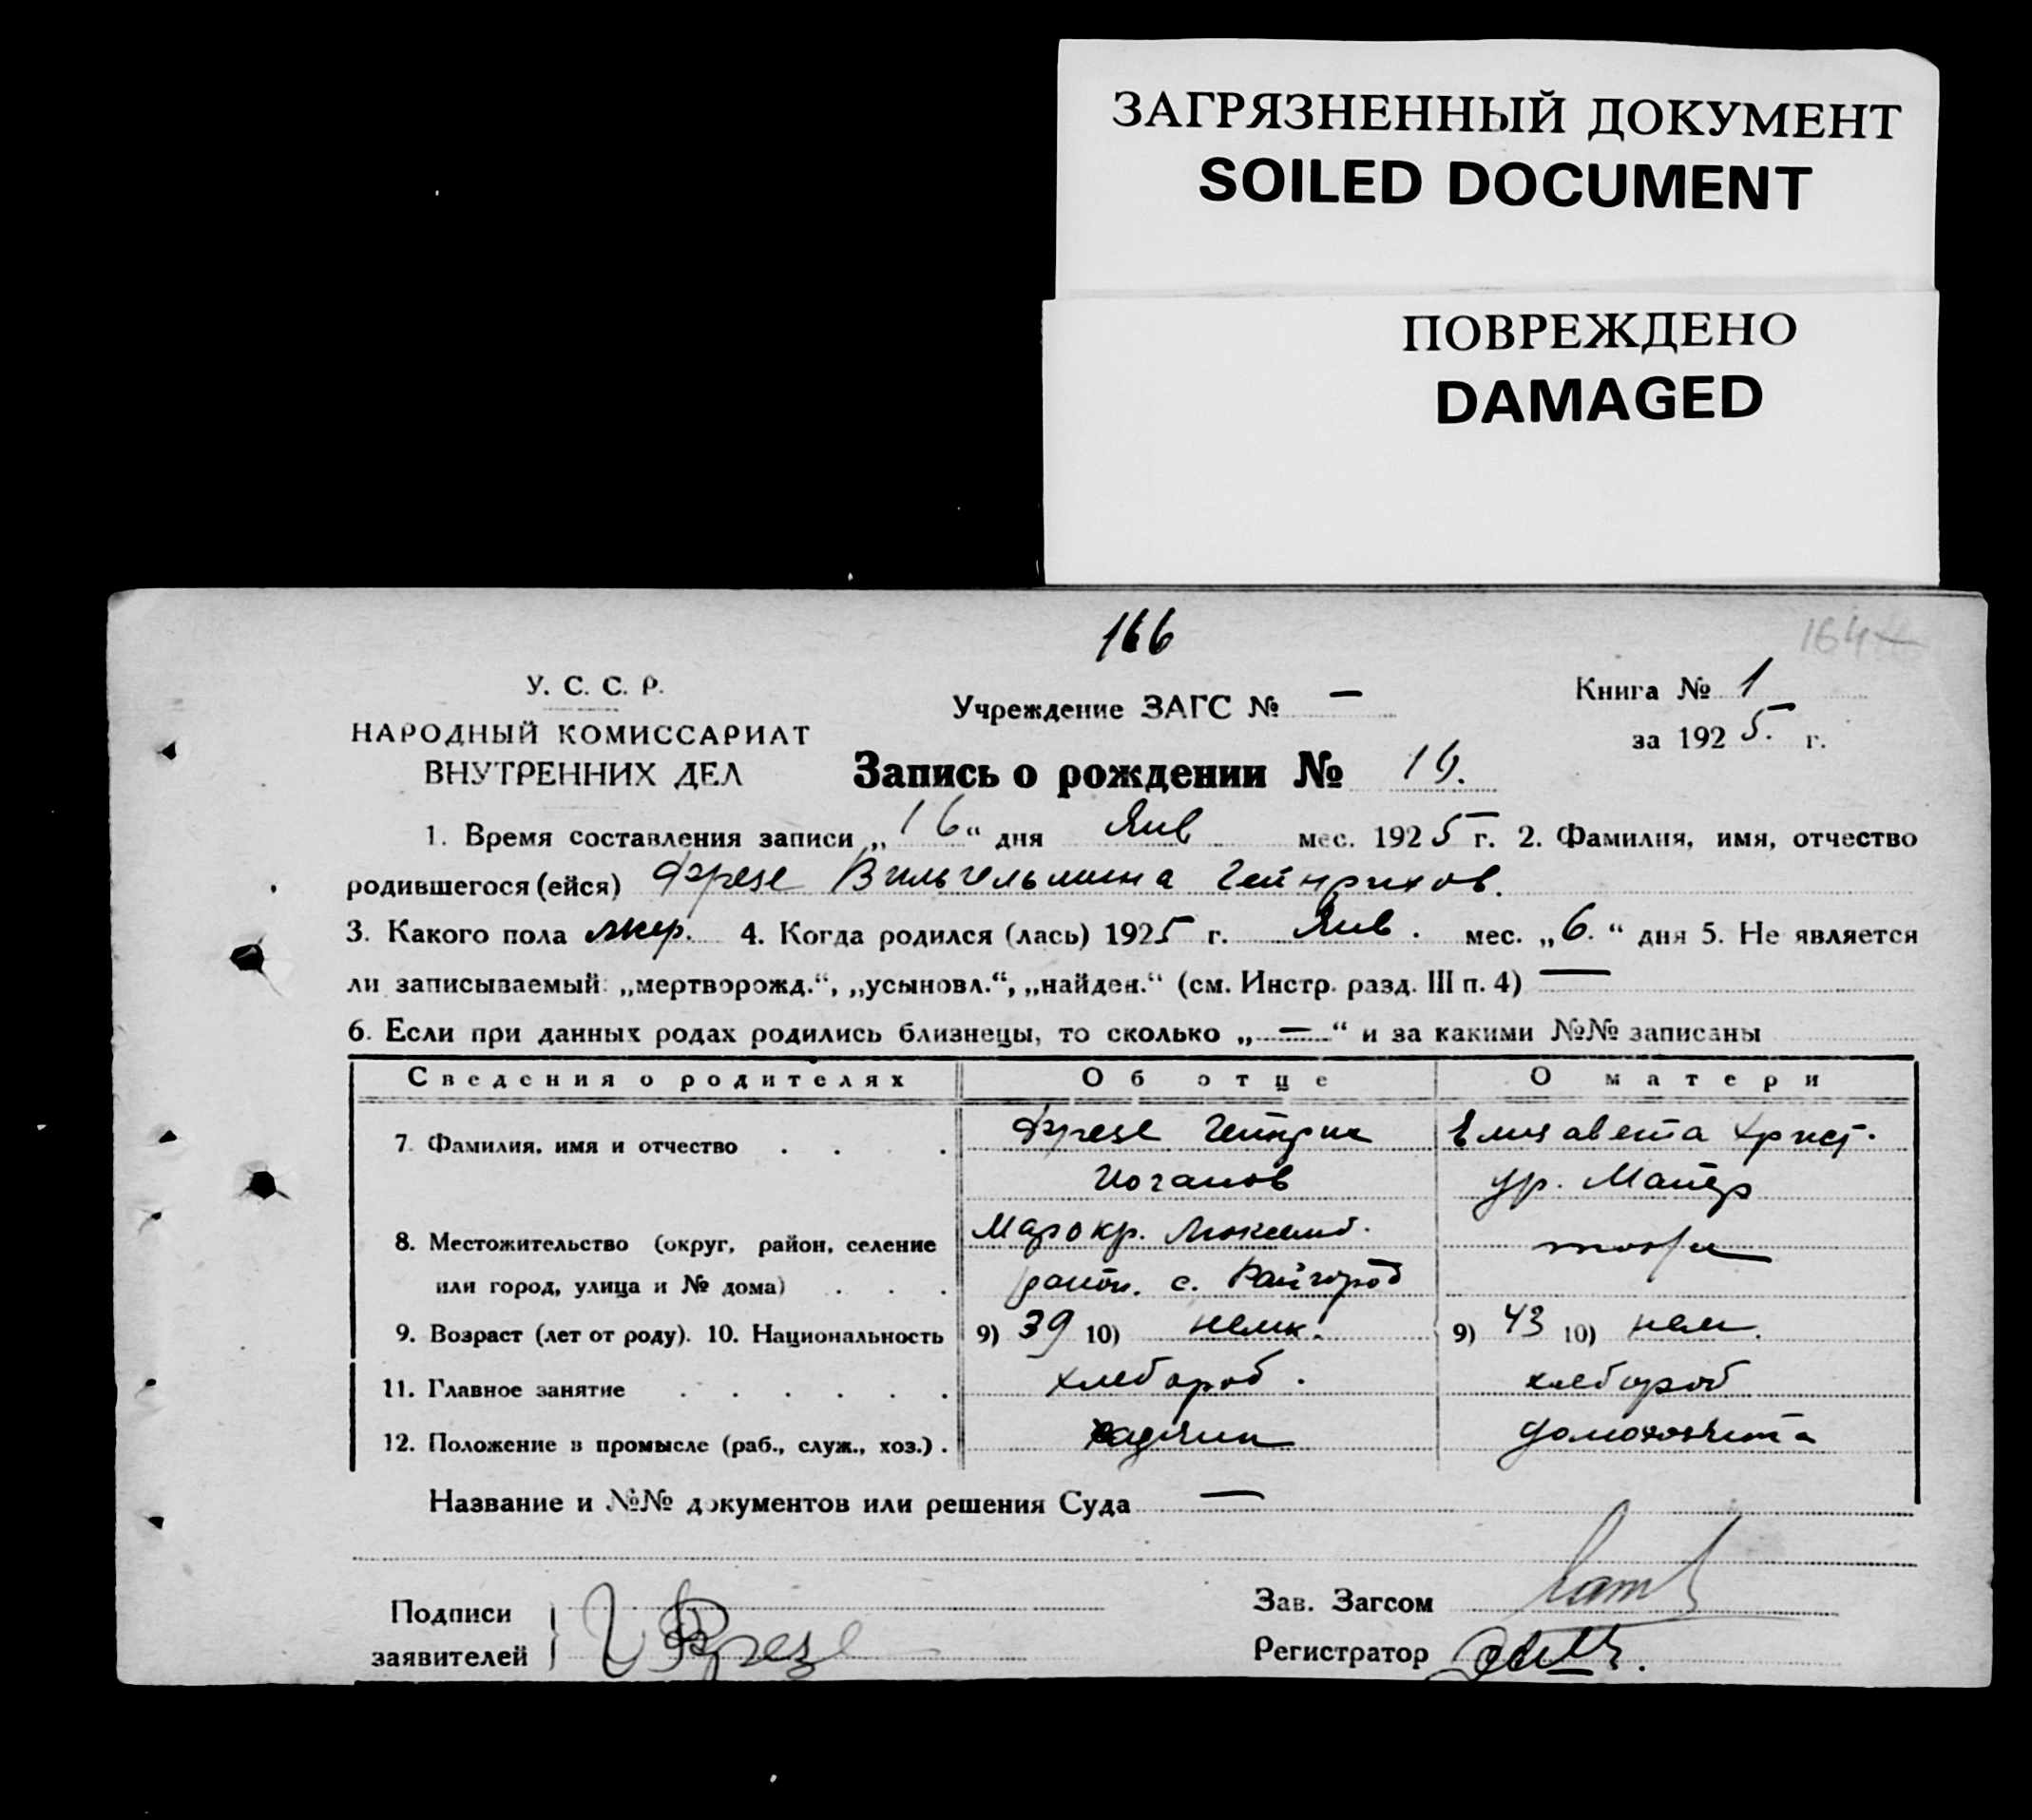 ЗАГРЯЗНЕННЫЙ ДОКУМЕНТ
SOILED DOCUMENT
ПОВРЕЖДЕНО
DAMAGED
166
У. С. С. Р.
НАРОДНЫЙ КОМИССАРИАТ
ВНУТРЕННИХ ДЕЛ
Учреждение ЗАГС № —
Запись о рождении №
Книга № 1
за 1925. г.
1. Время составления записи „16“ дня Янв мес. 1925 г. 2. Фамилия, имя, отчество
родившегося (ейся) Фрезе Вильгельмина Гейнрихов.
3. Какого пола 4. Когда родился (лась) 1925 г. Янв. мес. „6.“ дня 5. Не является
ли записываемый: „мертворожд.“, „усыновл.“, „найден.“ (см. Инстр. разд. III п. 4) —
6. Если при данных родах родились близнецы, то сколько „—“ и за какими №№ записаны
Сведения о родителях Об отце О матери
7. Фамилия, имя и отчество . . . . Фрезе Гейнрих Елизавета Христ.
Иоганов ур. Майер
8. Местожительство (округ, район, селение Мар окр. Люксемб.
или город, улица и № дома) . . . район. с. Райгород
9. Возраст (лет от роду). 10. Национальность 9) 39 10) немк. 9) 43 10) нем.
11. Главное занятие . . . . . . хлебороб. хлебороб
12. Положение в промысле (раб., служ., хоз.) .
Название и №№ документов или решения Суда —
Подписи
заявителей Г Фрезе
Зав. Загсом
Регистратор